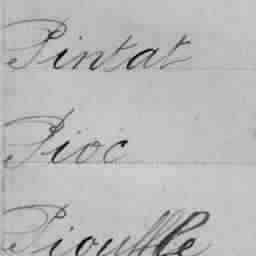 Pintat
Pioc
Piouffle